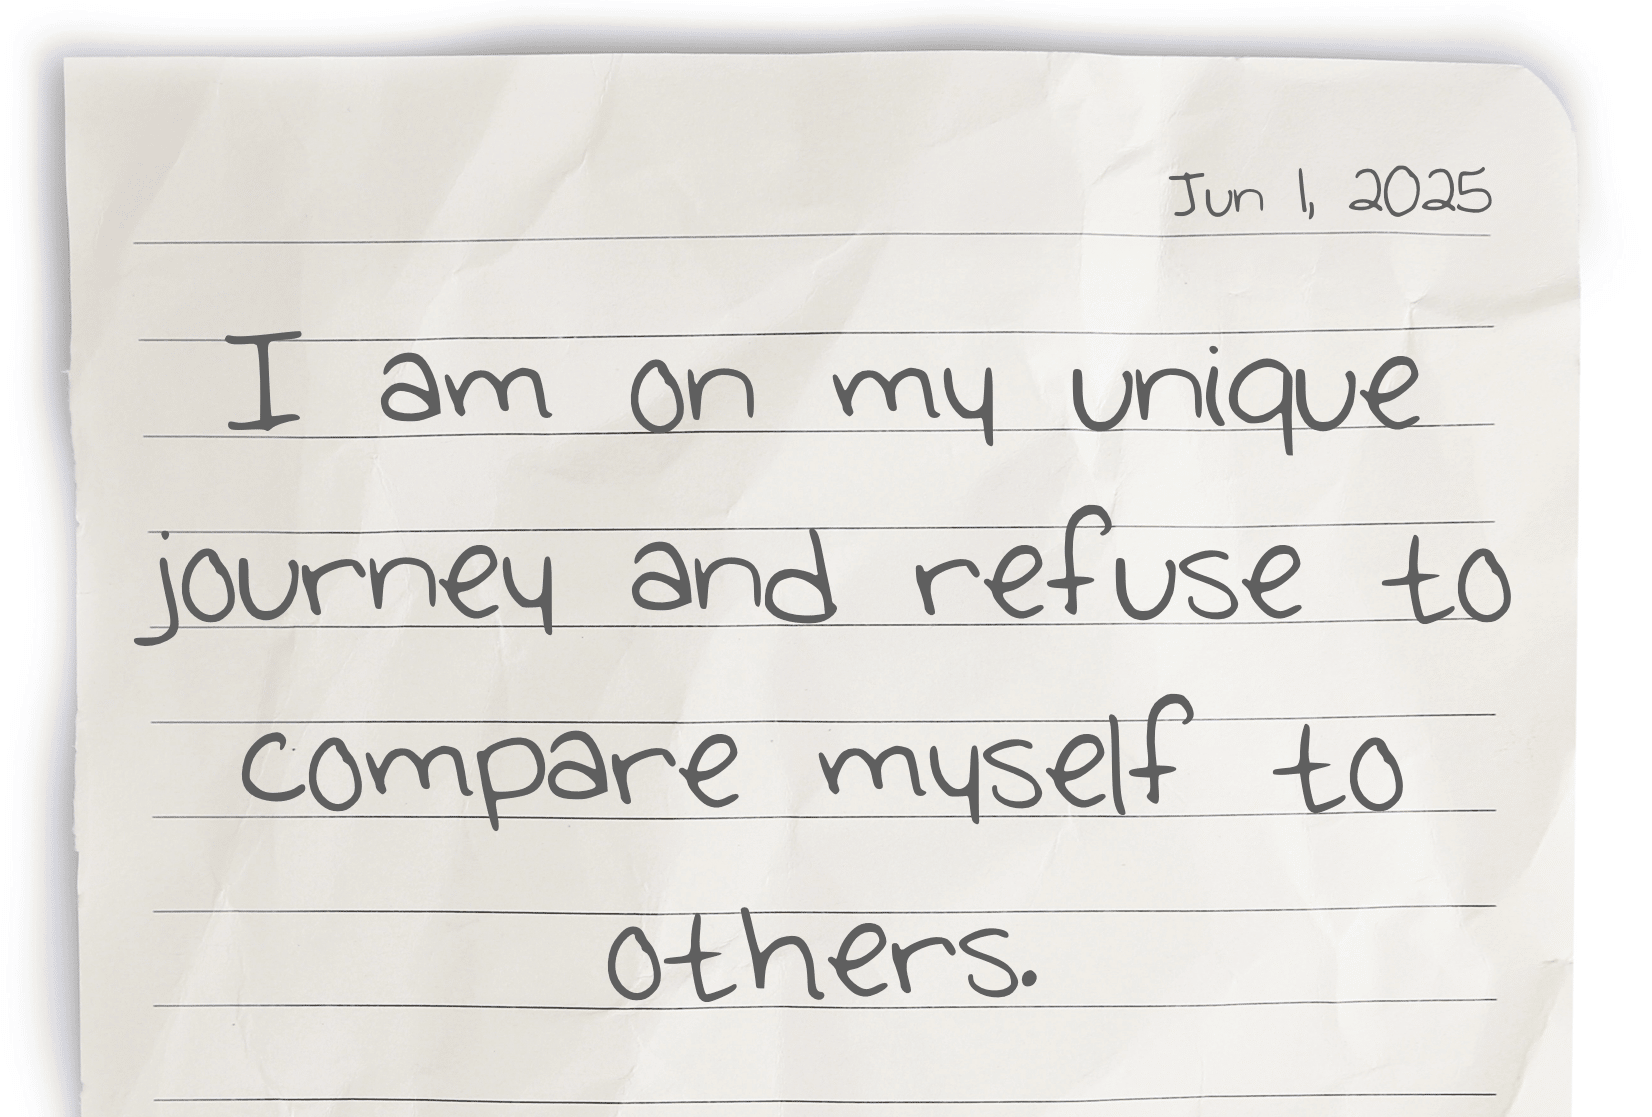 Jun 1, 2025
I am on my unique
journey and refuse to
compare myself to
others.